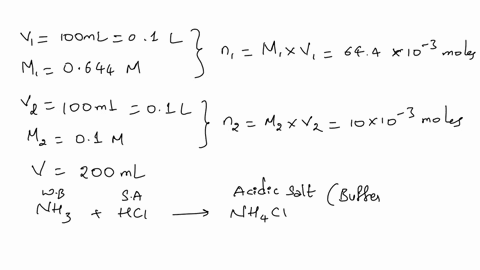 V₁ = 100mL = 0.1 L
M₁ = 0.644 M
n₁ = M₁ × V₁ = 64.4 × 10⁻³ moles
V₂ = 100ml = 0.1 L
M₂ = 0.1 M
n₂ = M₂ × V₂ = 10×10⁻³ moles
V = 200 mL
W.B S.A Acidic Salt (Buffer
NH₃ + HCl → NH₄Cl